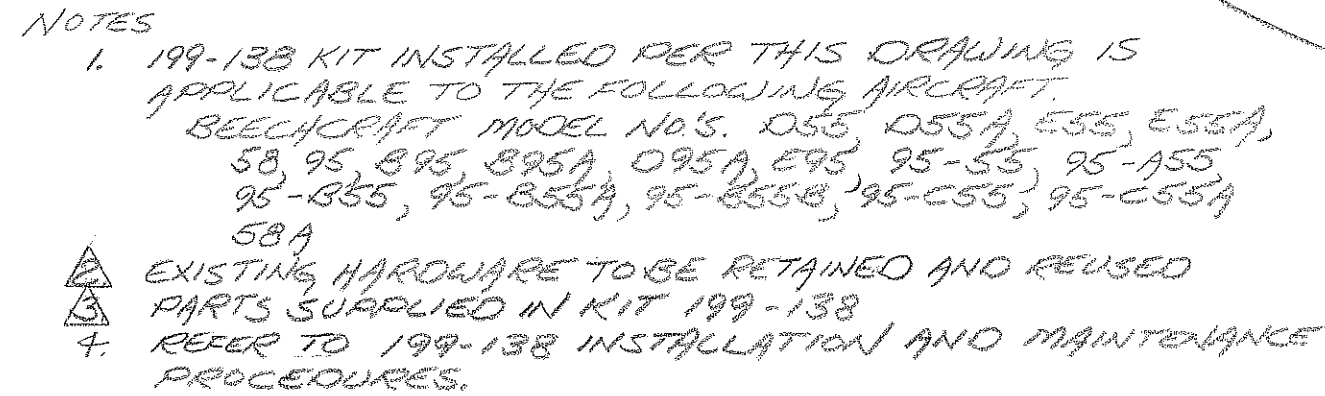 NOTES
1. 199-138 KIT INSTALLED PER THIS DRAWING IS
APPLICABLE TO THE FOLLOWING AIRCRAFT.
BEECHCRAFT MODEL NO'S. D55, D55A, E55, E55A,
58, 95, B95, B95A, D95A, E95, 95-55, 95-A55,
95-B55, 95-B55A, 95-B55B, 95-C55, 95-C55A
58A
2. EXISTING HARDWARE TO BE RETAINED AND REUSED
3. PARTS SUPPLIED IN KIT 199-138
4. REFER TO 199-138 INSTALLATION AND MAINTENANCE
PROCEDURES.